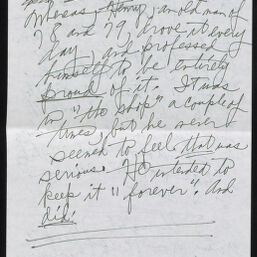 Whereas Henry, an old man of
78 and 79, drove it every
day, and professed
himself to be entirely
proud of it. It was
in "the shop" a couple of
times, but he never
seemed to feel that was
serious. He intended to
keep it "forever". And
did.